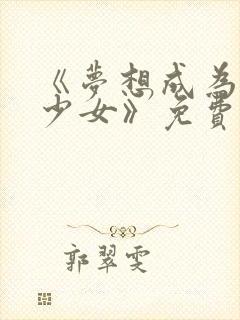 《夢想成為
少女》免費
郭翠雯